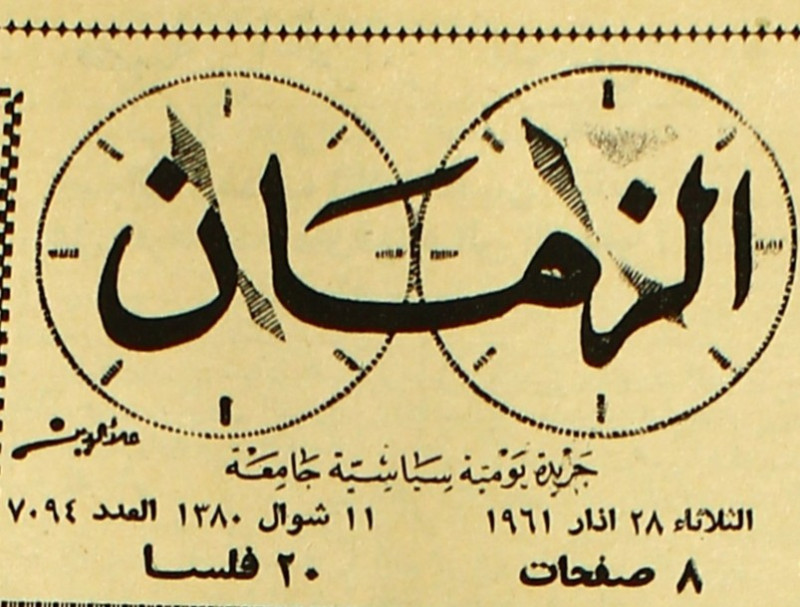 الزمان
علاءالدين
جريدة يومية سياسية جامعة
الثلاثاء ٢٨ اذار ١٩٦١ ١١ شوال ١٣٨٠ العدد ٧٠٩٤
٨ صفحات ٢٠ فلسا